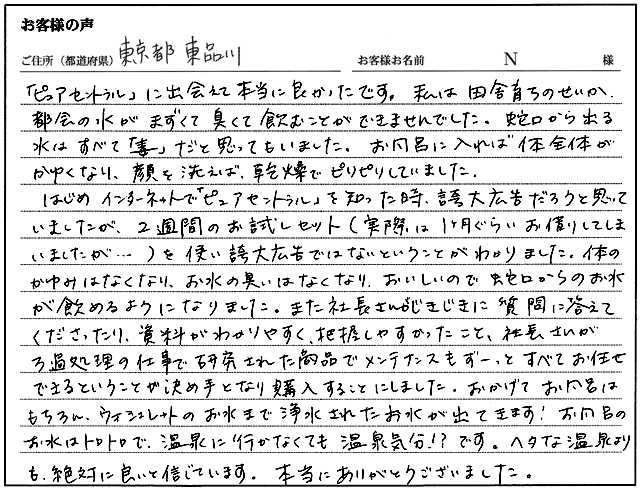 お客様の声
ご住所（都道府県） 東京都 東品川 お客様お名前 N 様
「ピュアセントラル」に出会えて本当に良かったです。私は田舎育ちのせいか、
都会の水がまずくて臭くて飲むことができませんでした。蛇口から出る
水はすべて「毒」だと思ってもいました。お風呂に入れば体全体が
かゆくなり、顔を洗えば、乾燥でピリピリしていました。
はじめインターネットで「ピュアセントラル」を知った時、誇大広告だろうと思って
いましたが、2週間のお試しセット（実際は1ヶ月ぐらいお借りしてしま
いましたが…）を使い誇大広告ではないということがわかりました。体の
かゆみはなくなり、お水の臭いはなくなり、おいしいので蛇口からのお水
が飲めるようになりました。また社長さんがじきじきに質問に答えて
くださったり、資料がわかりやすく、把握しやすかったこと、社長さんが
ろ過処理の仕事で研究された商品でメンテナンスもずーっとすべてお任せ
できるということが決め手となり購入することにしました。おかげでお風呂は
もちろん、ウォシュレットのお水まで浄水されたお水が出てきます！お風呂の
お水はトロトロで、温泉に行かなくても温泉気分!?です。ヘタな温泉より
も、絶対に良いと信じています。本当にありがとうございました。